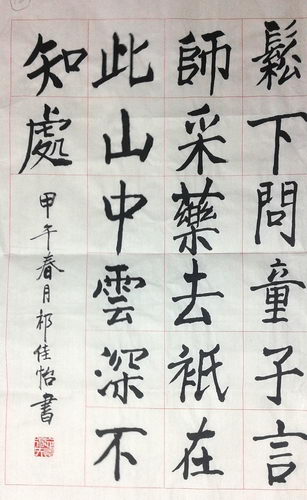 鬆下問童子言
師采藥去衹在
此山中雲深不
知處
甲午春月祁佳怡書